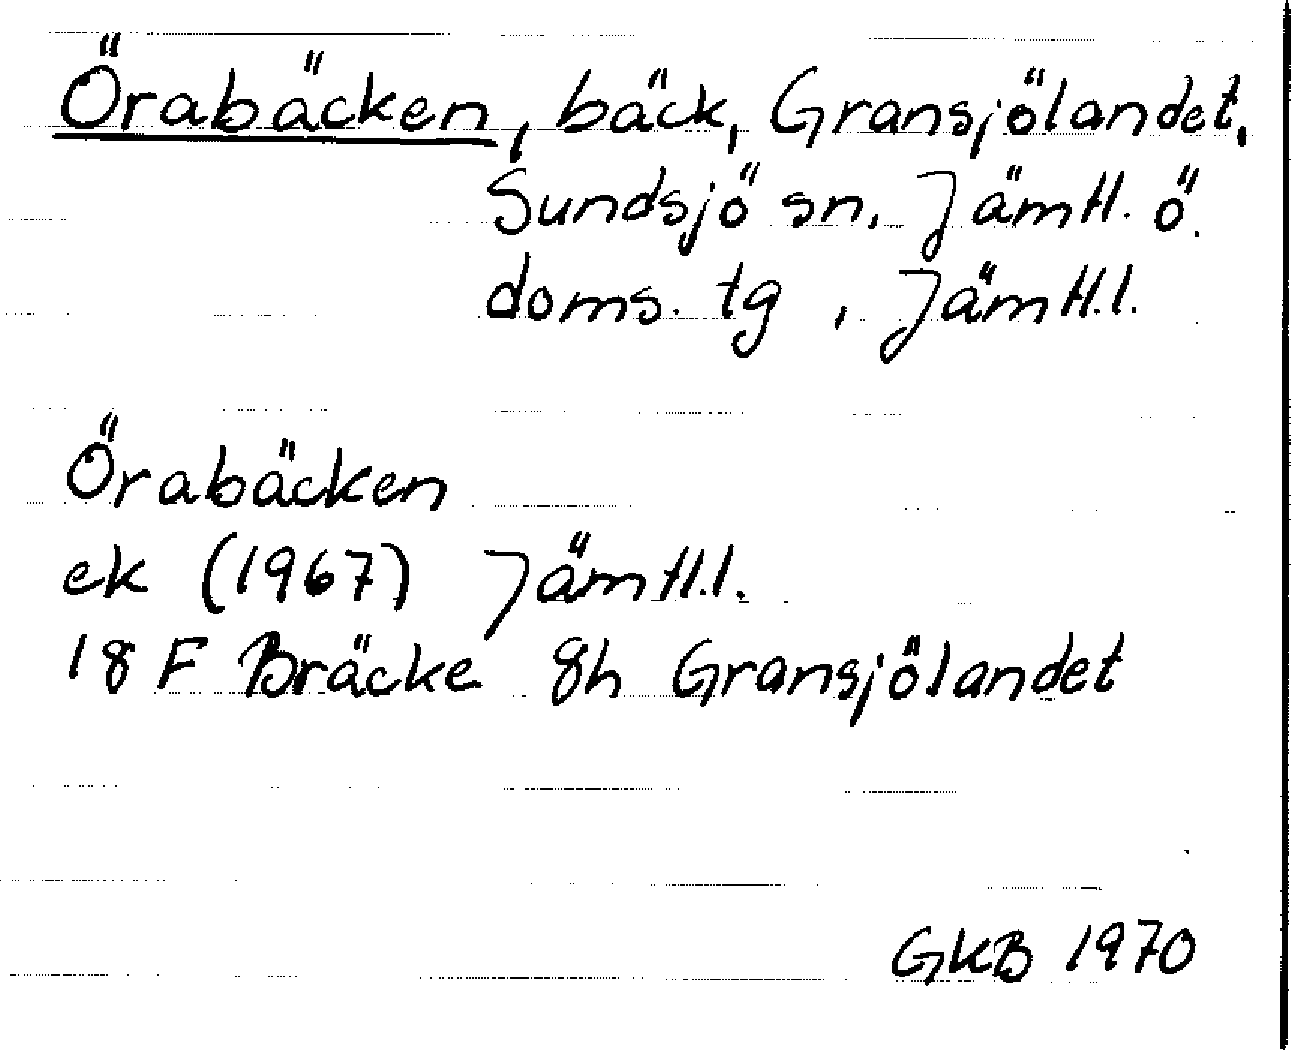 Örabäcken, bäck, Gransjölandet,
Sundsjö sn, Jämtl. ö.
doms. tg, Jämtl.l.
Örabäcken
ek (1967) Jämtl.l.
18 F Bräcke 8h Gransjölandet
GKB 1970